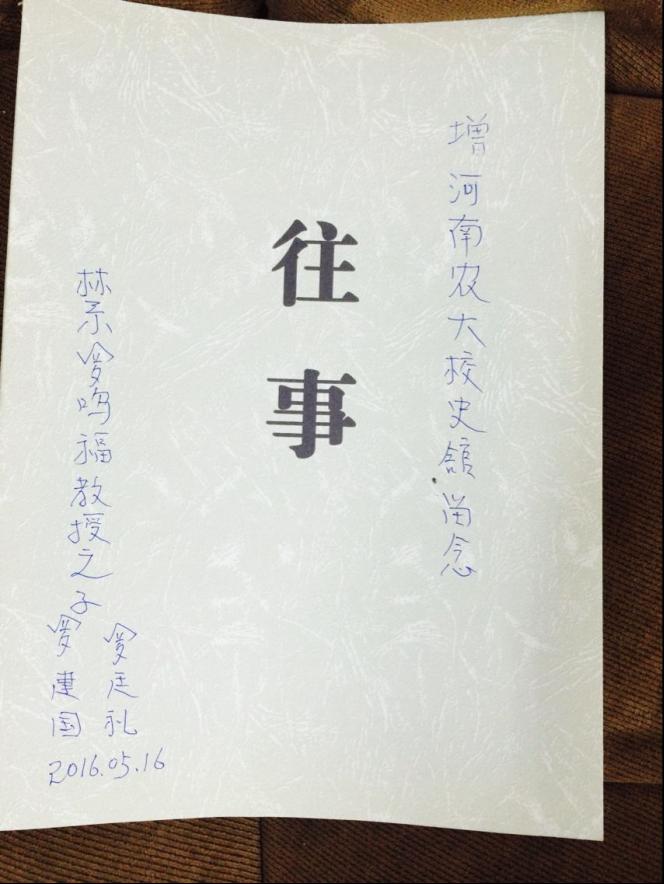 增河南农大校史馆留念
往事
林系罗鸣福教授之子
罗廷礼
罗建国
2016.05.16